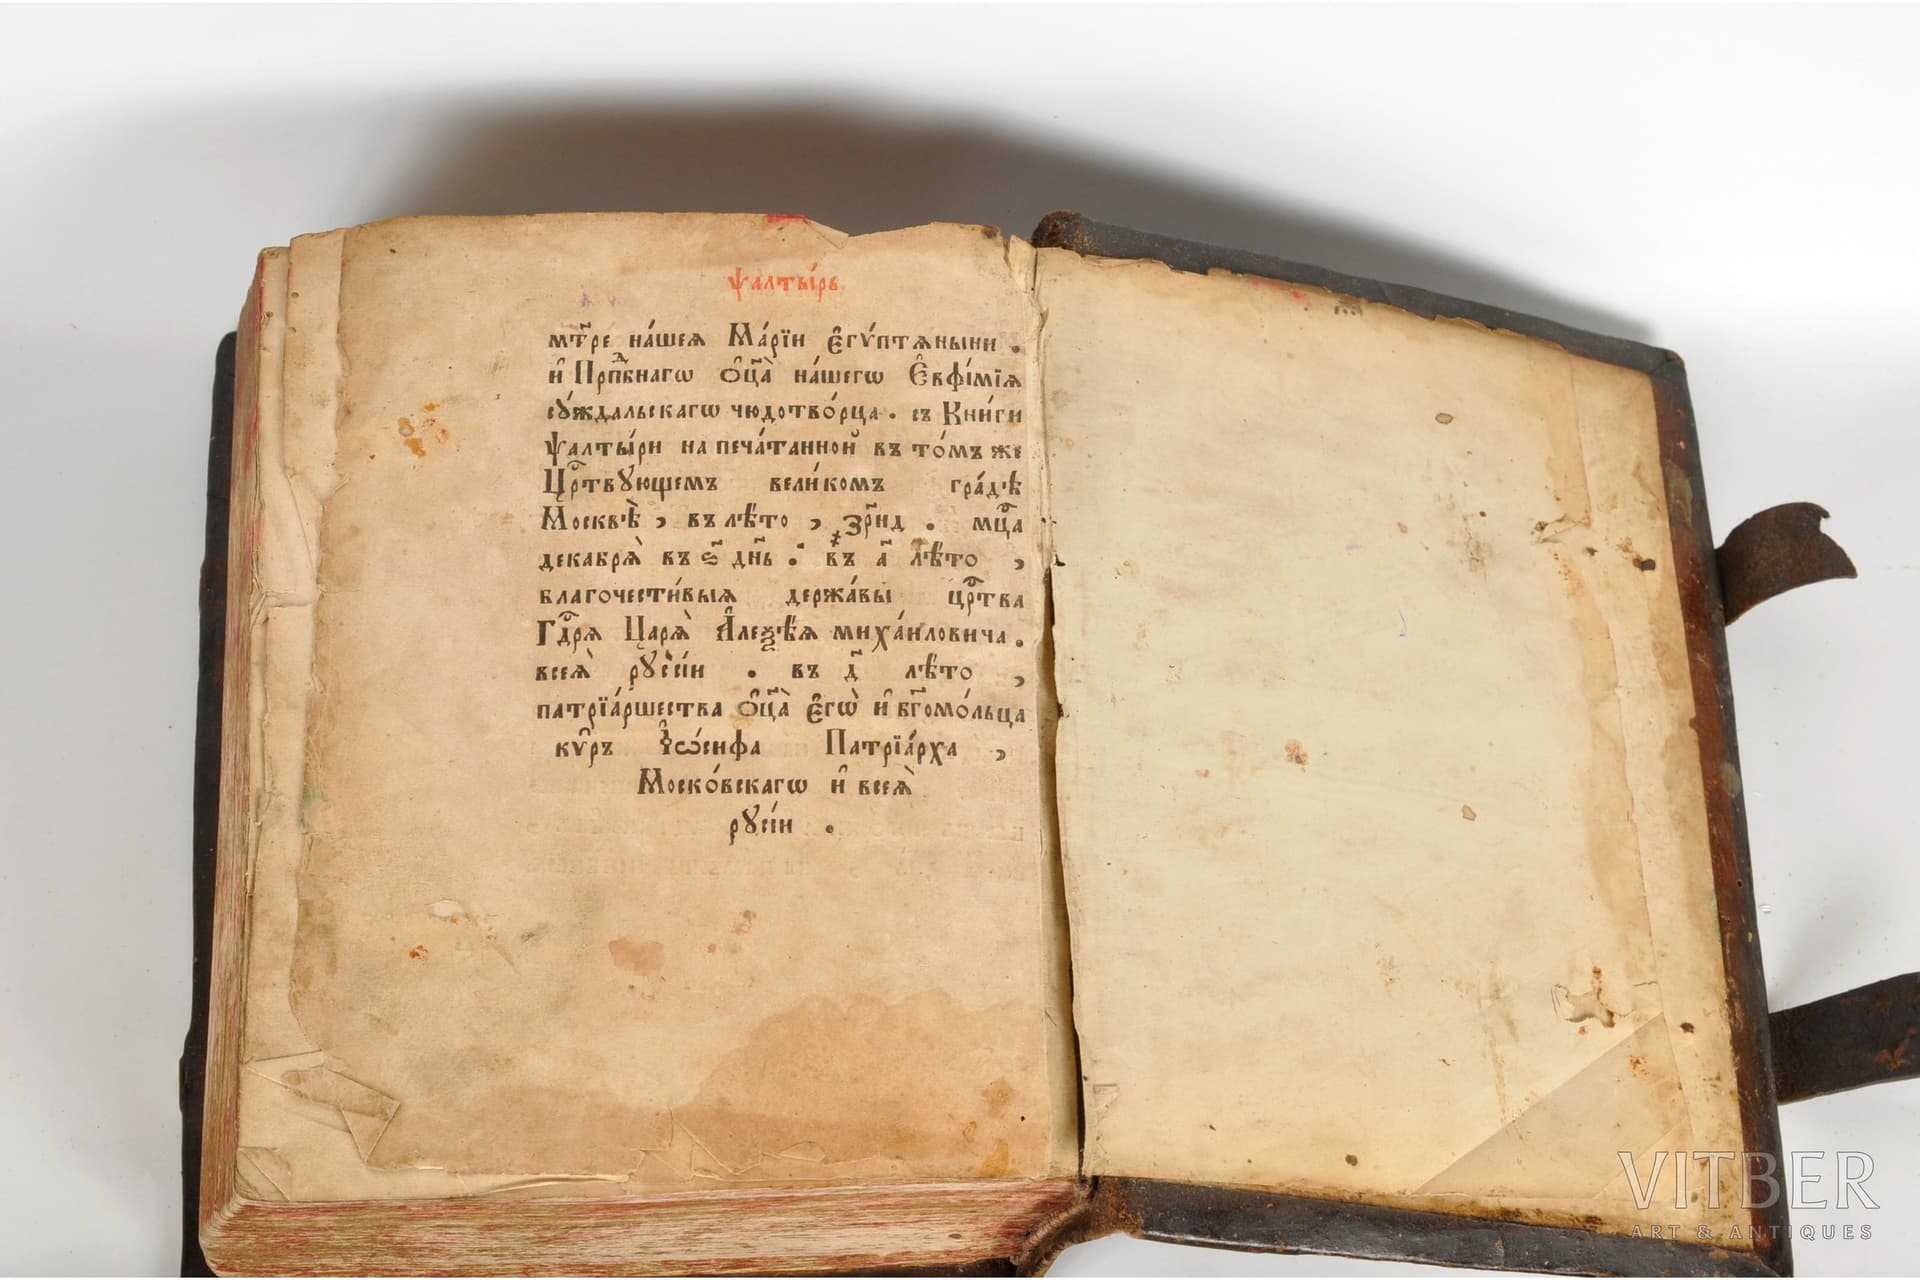 Ѱалты́рь
мт҃ре на́шеѧ Ма́рїи є҆гу́птѧныни .
и҆ Прпⷣбнагѡ ѻ҆ц҃а̀ на́шегѡ Є҆вфи́мїѧ
сꙋ́ждальскагѡ чюдотво́рца . съ Кни́ги
Ѱалты́ри на печа́танной въ то́мъ же
Црⷭ҇твꙋющемъ вели́комъ гра́дѣ
Москвѣ̀ , въ лѣ́то , ҂зрн҃д . мцⷭ҇а
декабрѧ̀ въ ѕ҃ дн҃ь . въ а҃ лѣ́то ,
благочести́выѧ держа́вы црⷭ҇тва
Гдⷭ҇рѧ Царѧ̀ А҆леѯѣ́ѧ миха́иловича .
всеѧ̀ рꙋсі́и . въ д҃ лѣ́то ,
патрїа́ршества ѻ҆ц҃а̀ є҆гѡ̀ и҆ бг҃омо́льца
кѵ҆ръ І҆ѡ́сифа Патрїа́рха ,
Моско́вскагѡ и҆ всеѧ̀
рꙋсі́и .
VITBER
ART & ANTIQUES